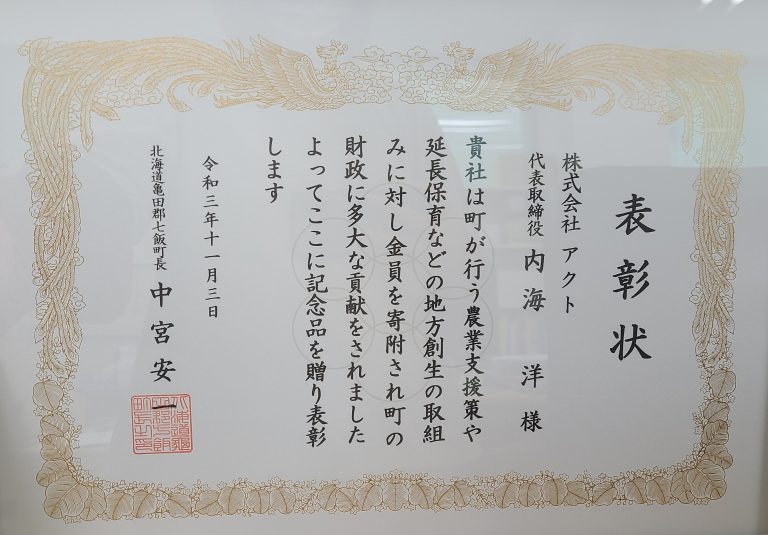 表彰状
株式会社 アクト
代表取締役 内海 洋 様
貴社は町が行う農業支援策や
延長保育などの地方創生の取組
みに対し金員を寄附され町の
財政に多大な貢献をされました
よってここに記念品を贈り表彰
します
令和三年十一月三日
北海道亀田郡七飯町長 中宮安一